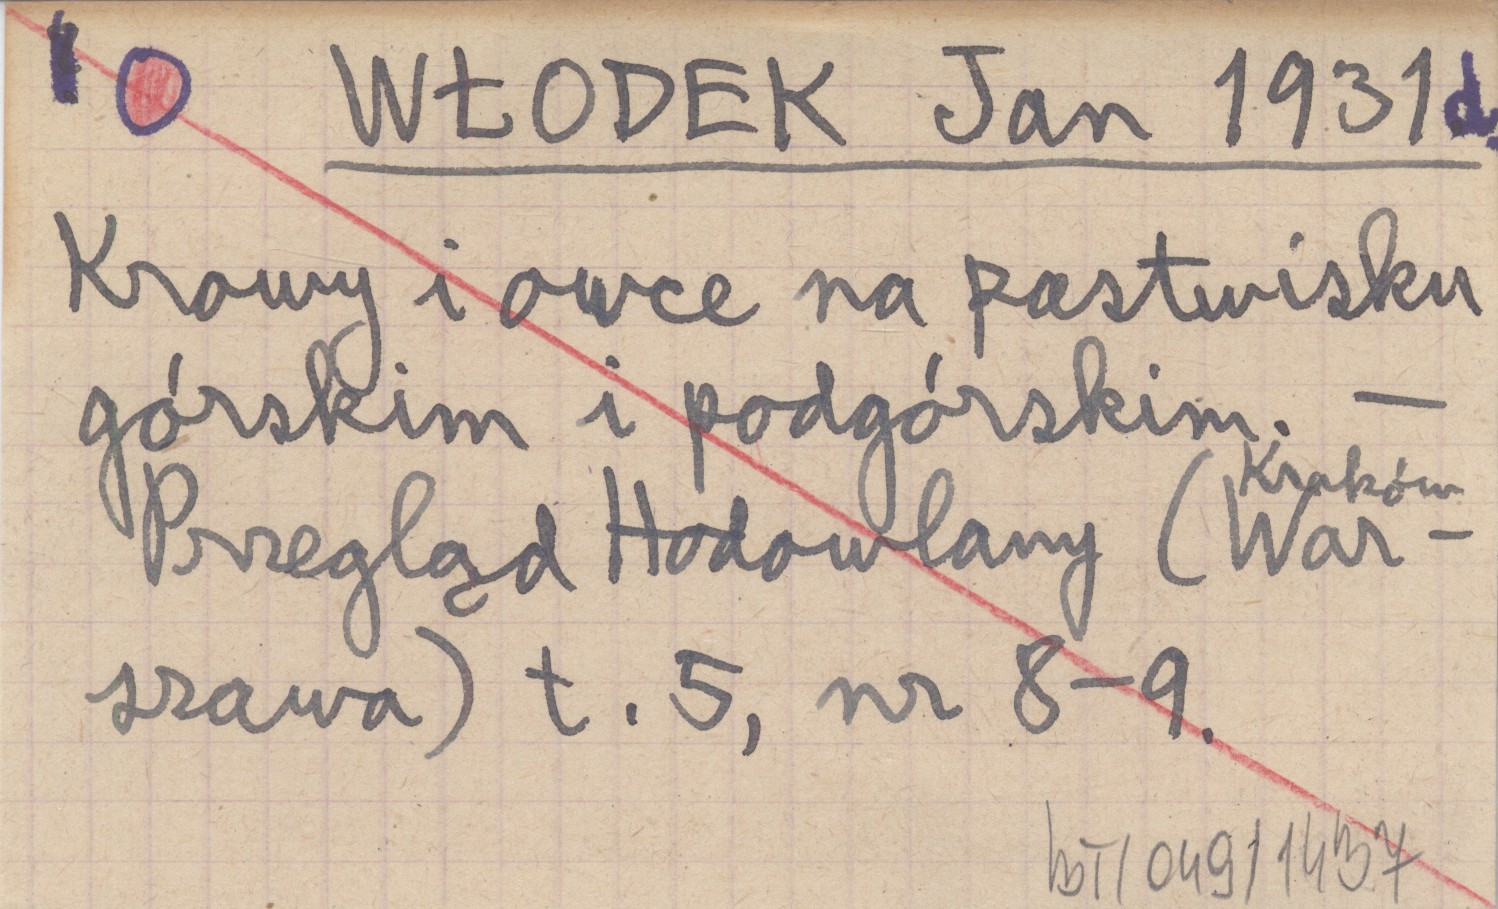 WŁODEK Jan 1931d.
Krowy i owce na pastwisku
górskim i podgórskim. —
Kraków
Przegląd Hodowlany (War-
szawa) t. 5, nr 8-9.